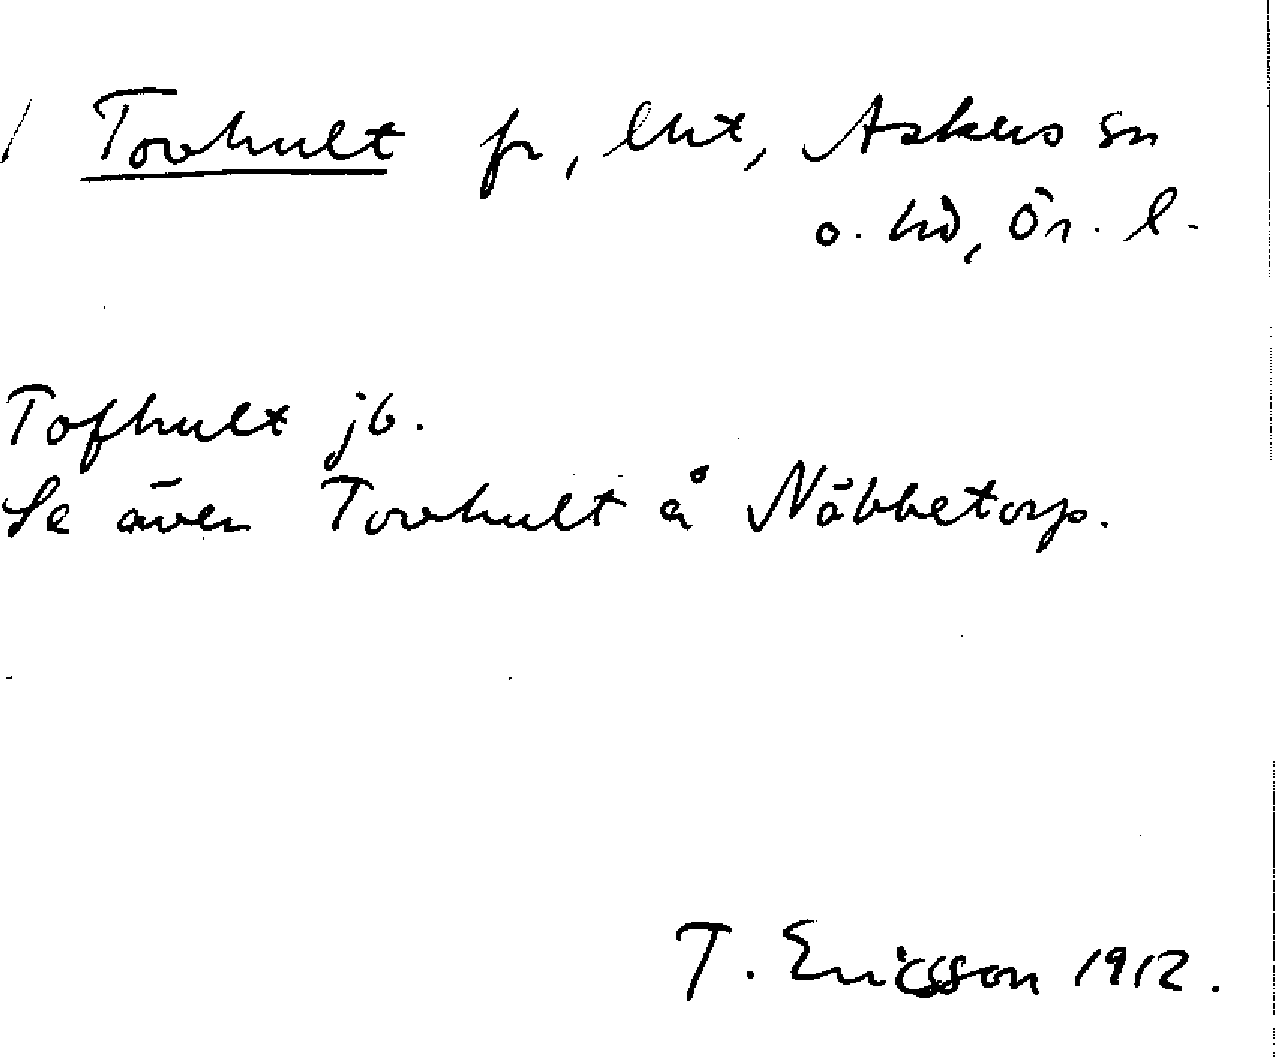 / Tovhult fr, lht, Askers sn
o. hd, Ör. l.
Tofhult jb.
Se även Tovhult å Näbbetorp.
T. Ericsson 1912.